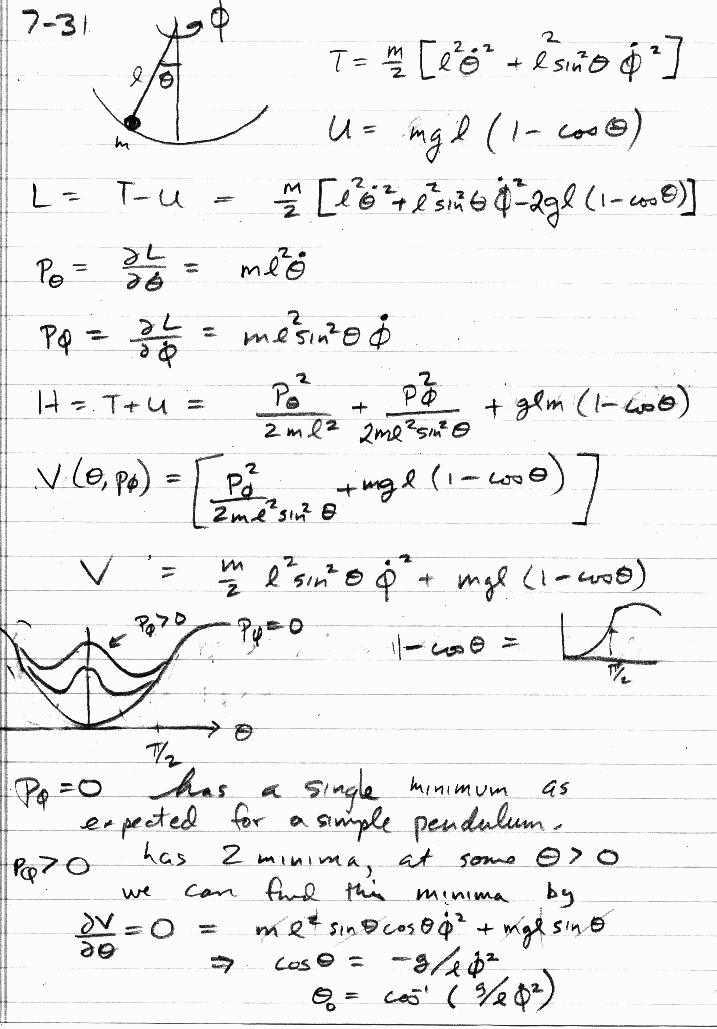 7-31 ϕ
l θ
m
T = m/2 [l²θ̇² + l² sin²θ ϕ̇²]
U = mgl (1 - cosθ)
L = T-U = m/2 [l²θ̇² + l² sin²θ ϕ̇² - 2gl (1-cosθ)]
Pθ = ∂L/∂θ̇ = ml²θ̇
Pϕ = ∂L/∂ϕ̇ = ml² sin²θ ϕ̇
H = T+U = Pθ²/2ml² + Pϕ²/2ml² sin²θ + glm (1-cosθ)
V(θ, Pϕ) = [Pϕ²/2ml² sin²θ + mgl (1-cosθ)]
V = m/2 l² sin²θ ϕ̇² + mgl (1-cosθ)
Pϕ>0 Pϕ=0 1-cosθ =
π/2
θ
π/2
Pϕ=0 has a single minimum as
expected for a simple pendulum.
Pϕ>0 has 2 minima, at some θ>0
we can find this minima by
∂V/∂θ = 0 = ml² sinθ cosθ ϕ̇² + mgl sinθ
⇒ cosθ = -g/lϕ̇²
θ₀ = cos⁻¹ (g/lϕ̇²)